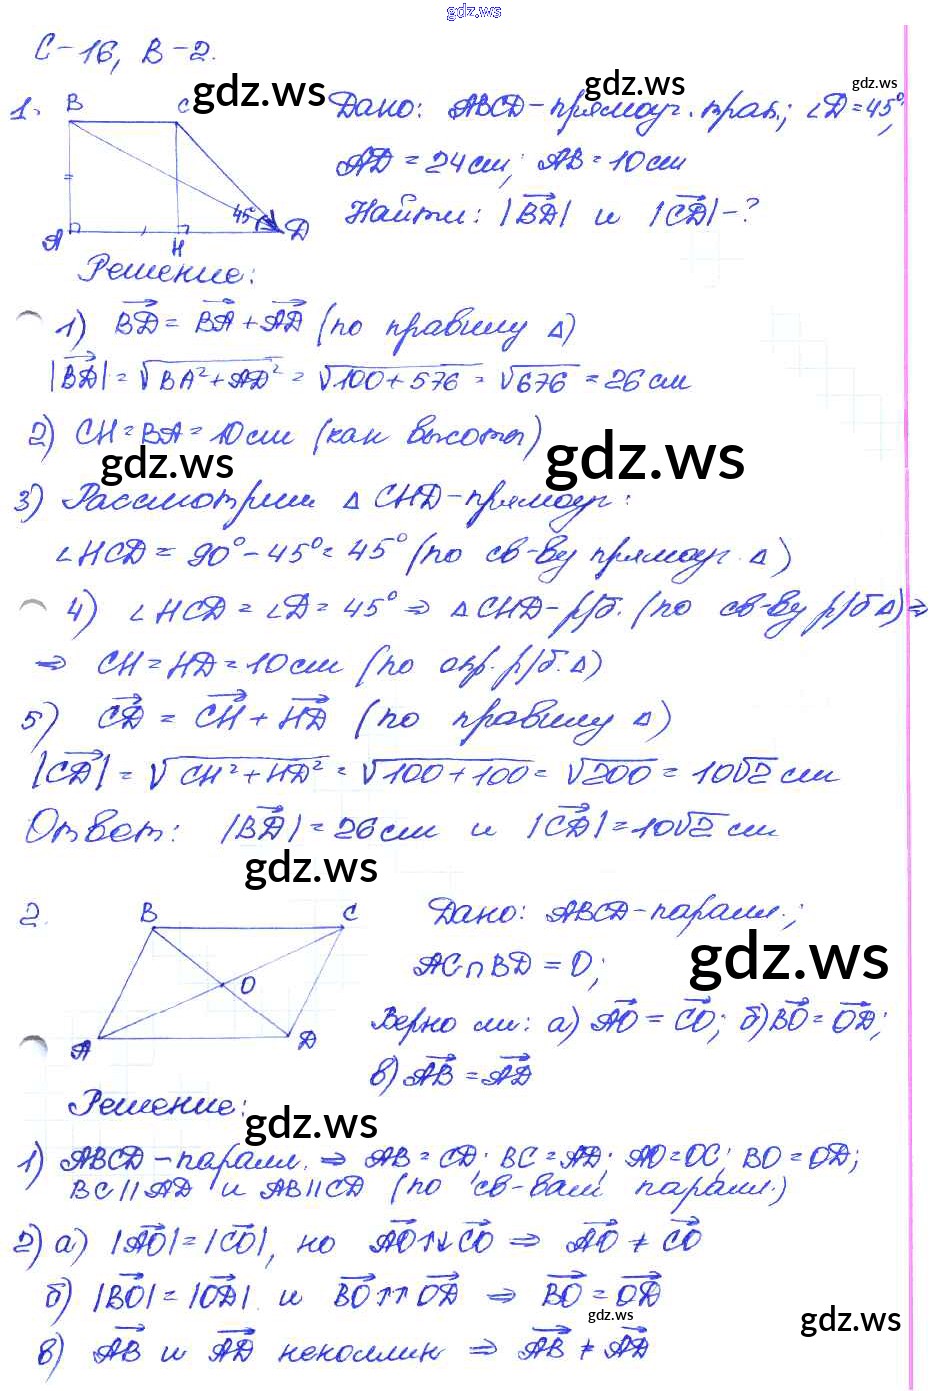 gdz.ws
С-16, В-2.
gdz.ws gdz.ws gdz.ws
1. B C Дано: ABCD-прямоуг. трап.; ∠D=45°,
AD = 24см; AB = 10см
45° Найти: |BD| и |CD|-?
A H D
Решение:
1) BD = BA + AD (по правилу Δ)
|BD| = √BA²+AD² = √100+576 = √676 = 26см
2) CH=BA=10см (как высоты)
gdz.ws gdz.ws
3) Рассмотрим Δ CHD-прямоуг:
∠HCD = 90°-45°=45° (по св-ву прямоуг. Δ)
4) ∠HCD = ∠D = 45° ⇒ ΔCHD-р/б. (по св-ву р/б Δ) ⇒
⇒ CH=HD=10см (по опр. р/б. Δ)
5) CD = CH + HD (по правилу Δ)
|CD| = √CH²+HD² = √100+100 = √200 = 10√2 см
Ответ: |BD|=26см и |CD|=10√2 см
gdz.ws
2. B C Дано: ABCD-паралл.;
gdz.ws
AC∩BD = O;
O
Верно ли: а) AO = CO; б) BO = OD;
A D
в) AB = AD
Решение:
gdz.ws
1) ABCD-паралл. ⇒ AB=CD; BC=AD; AO=OC; BO=OD;
BC||AD и AB||CD (по св-вам паралл.)
2) а) |AO|=|CO|, но AO↑↓CO ⇒ AO ≠ CO
б) |BO|=|OD| и BO↑↑OD ⇒ BO = OD
gdz.ws gdz.ws
в) AB и AD неколлин ⇒ AB ≠ AD